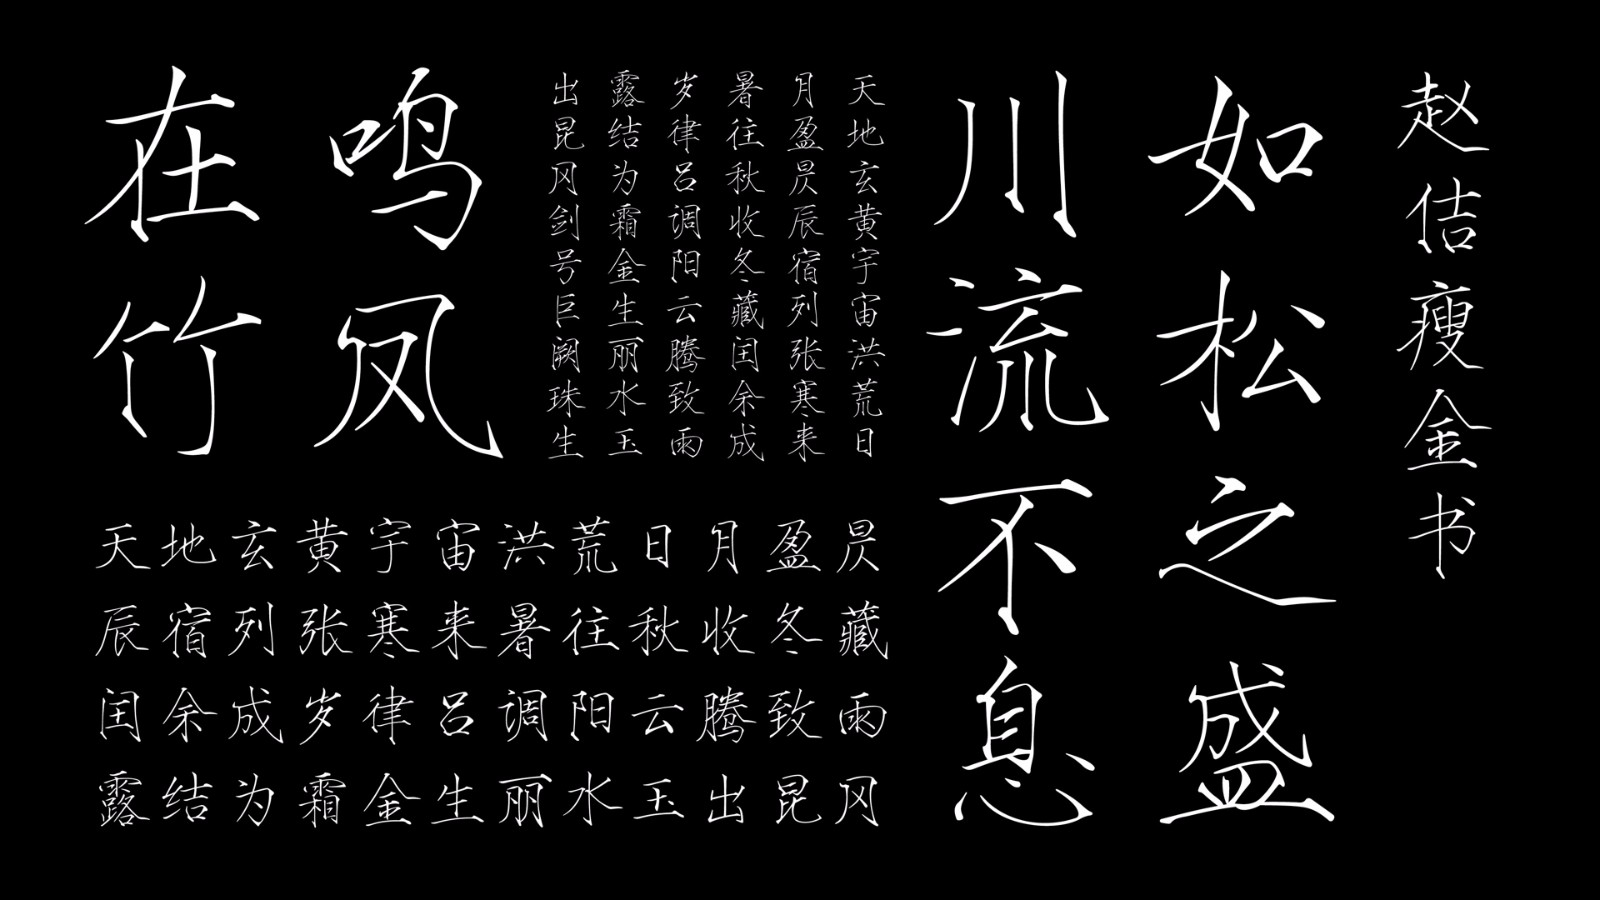 赵佶瘦金书
如松之盛
川流不息
天地玄黄宇宙洪荒日
月盈昃辰宿列张寒来
暑往秋收冬藏闰余成
岁律吕调阳云腾致雨
露结为霜金生丽水玉
出昆冈剑号巨阙珠生
鸣凤
在竹
天地玄黄宇宙洪荒日月盈昃
辰宿列张寒来暑往秋收冬藏
闰余成岁律吕调阳云腾致雨
露结为霜金生丽水玉出昆冈